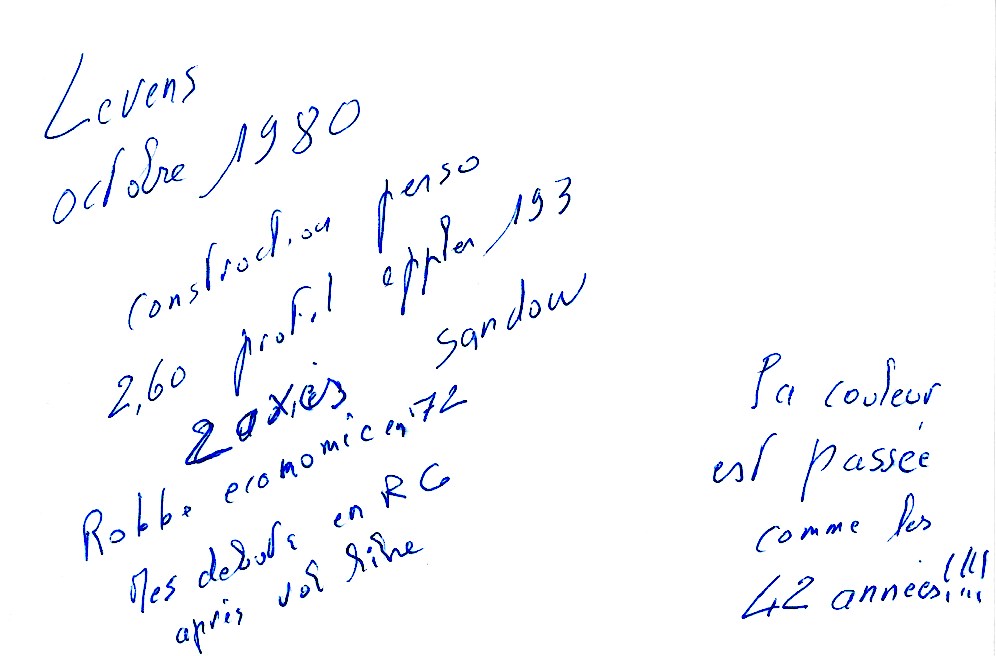 Levens
octobre 1980
construction perso
2,60 profil eppler 193
2 axes sandow
Robbe economic en 72
Mes debuts en RC
après vol libre
la couleur
est passée
comme les
42 années!!!!